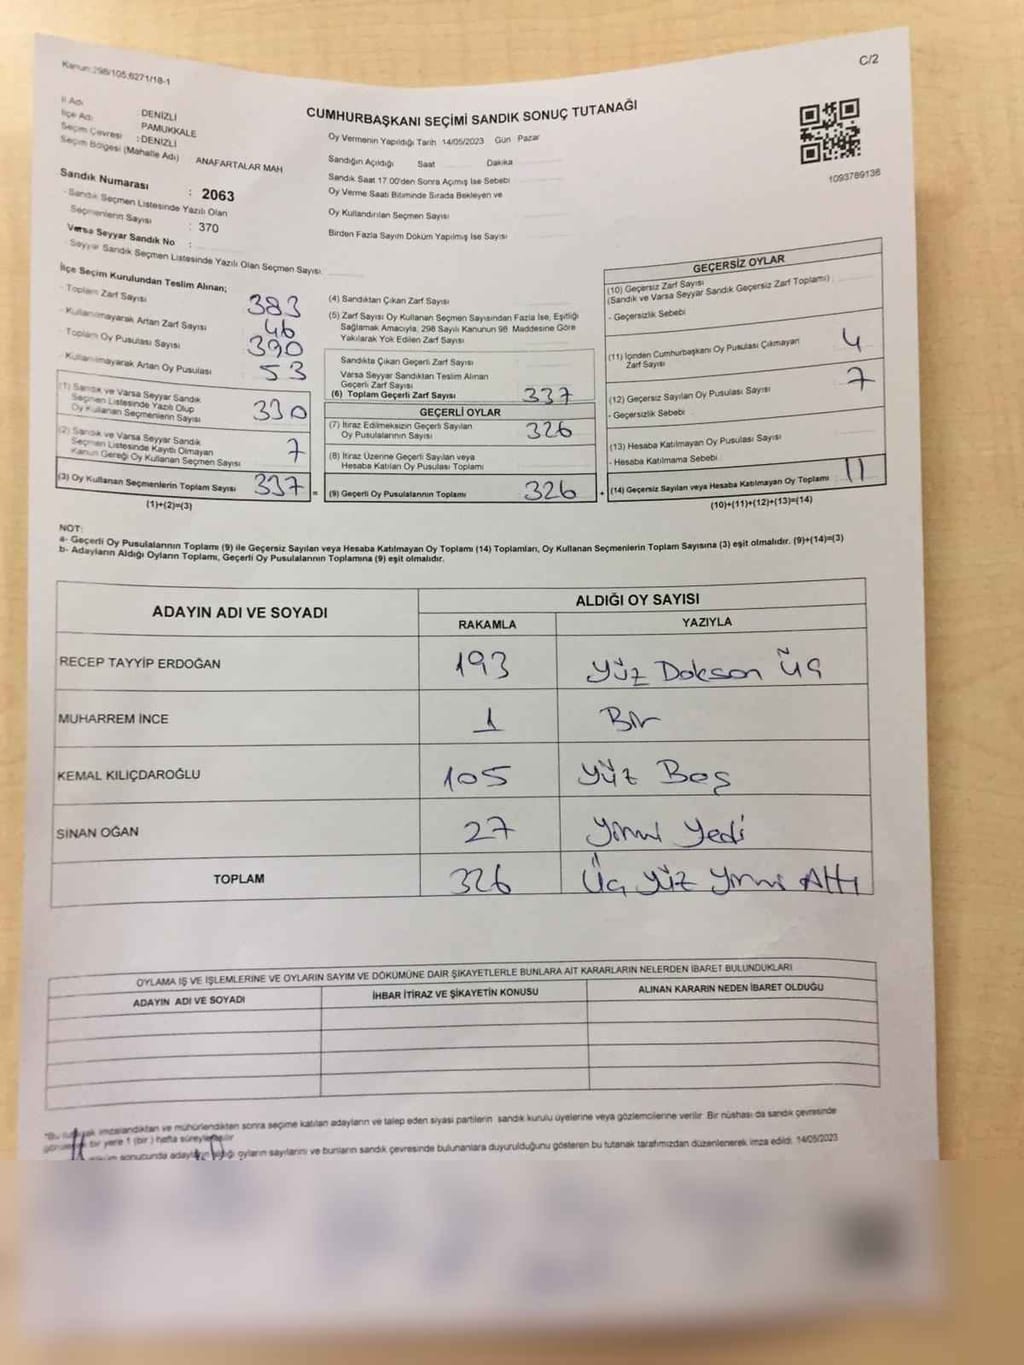 Kanun:298/105,6271/18-1
C/2
CUMHURBAŞKANI SEÇİMİ SANDIK SONUÇ TUTANAĞI
İl Adı DENİZLİ
İlçe Adı PAMUKKALE
Seçim Çevresi : DENİZLİ
Seçim Bölgesi (Mahalle Adı) ANAFARTALAR MAH
Sandık Numarası : 2063
- Sandık Seçmen Listesinde Yazılı Olan
Seçmenlerin Sayısı : 370
Varsa Seyyar Sandık No :
- Seyyar Sandık Seçmen Listesinde Yazılı Olan Seçmen Sayısı
Oy Vermenin Yapıldığı Tarih 14/05/2023 Gün Pazar
Sandığın Açıldığı Saat Dakika
Sandık Saat 17.00'den Sonra Açımış İse Sebebi
Oy Verme Saati Bitiminde Sırada Bekleyen ve
Oy Kullandırılan Seçmen Sayısı
Birden Fazla Sayım Döküm Yapılmış İse Sayısı
1093789136
İlçe Seçim Kurulundan Teslim Alınan;
- Toplam Zarf Sayısı 383
- Kullanılmayarak Artan Zarf Sayısı 46
- Toplam Oy Pusulası Sayısı 390
- Kullanılmayarak Artan Oy Pusulası 53
(1) Sandık ve Varsa Seyyar Sandık
Seçmen Listesinde Yazılı Olup
Oy Kullanan Seçmenlerin Sayısı 330
(2) Sandık ve Varsa Seyyar Sandık
Seçmen Listesinde Kayıtlı Olmayan
Kanun Gereği Oy Kullanan Seçmen Sayısı 7
(3) Oy Kullanan Seçmenlerin Toplam Sayısı 337 =
(1)+(2)=(3)
(4) Sandıktan Çıkan Zarf Sayısı
(5) Zarf Sayısı Oy Kullanan Seçmen Sayısından Fazla İse, Eşitliği
Sağlamak Amacıyla, 298 Sayılı Kanunun 98. Maddesine Göre
Yakılarak Yok Edilen Zarf Sayısı
Sandıkta Çıkan Geçerli Zarf Sayısı
Varsa Seyyar Sandıktan Teslim Alınan
Geçerli Zarf Sayısı
(6) Toplam Geçerli Zarf Sayısı 337
GEÇERLİ OYLAR
(7) İtiraz Edilmeksizin Geçerli Sayılan
Oy Pusulalarının Sayısı 326
(8) İtiraz Üzerine Geçerli Sayılan veya
Hesaba Katılan Oy Pusulası Toplamı
(9) Geçerli Oy Pusulalarının Toplamı 326 +
GEÇERSİZ OYLAR
(10) Geçersiz Zarf Sayısı
(Sandık ve Varsa Seyyar Sandık Geçersiz Zarf Toplamı)
- Geçersizlik Sebebi
(11) İçinden Cumhurbaşkanı Oy Pusulası Çıkmayan
Zarf Sayısı 4
(12) Geçersiz Sayılan Oy Pusulası Sayısı 7
- Geçersizlik Sebebi
(13) Hesaba Katılmayan Oy Pusulası Sayısı
- Hesaba Katılmama Sebebi
(14) Geçersiz Sayılan veya Hesaba Katılmayan Oy Toplamı 11
(10)+(11)+(12)+(13)=(14)
NOT:
a- Geçerli Oy Pusulalarının Toplamı (9) ile Geçersiz Sayılan veya Hesaba Katılmayan Oy Toplamı (14) Toplamları, Oy Kullanan Seçmenlerin Toplam Sayısına (3) eşit olmalıdır. (9)+(14)=(3)
b- Adayların Aldığı Oyların Toplamı, Geçerli Oy Pusulalarının Toplamına (9) eşit olmalıdır.
ADAYIN ADI VE SOYADI ALDIĞI OY SAYISI
RAKAMLA YAZIYLA
RECEP TAYYİP ERDOĞAN 193 Yüz Dokson Üç
MUHARREM İNCE 1 Bir
KEMAL KILIÇDAROĞLU 105 Yüz Beş
SİNAN OĞAN 27 Yirmi Yedi
TOPLAM 326 Üç Yüz Yirmi Altı
OYLAMA İŞ VE İŞLEMLERİNE VE OYLARIN SAYIM VE DÖKÜMÜNE DAİR ŞİKAYETLERLE BUNLARA AİT KARARLARIN NELERDEN İBARET BULUNDUKLARI
ADAYIN ADI VE SOYADI İHBAR İTİRAZ VE ŞİKAYETİN KONUSU ALINAN KARARIN NEDEN İBARET OLDUĞU
imzalandıktan ve mühürlendikten sonra seçime katılan adayların ve talep eden siyasi partilerin sandık kurulu üyelerine veya gözlemcilerine verilir. Bir nüshası da sandık çevresinde
bir yere 1 (bir) hafta süreyle
sonucunda oyların sayılarını ve bunların sandık çevresinde bulunanlara duyurulduğunu gösteren bu tutanak tarafımızdan düzenlenerek imza edildi. 14/05/2023